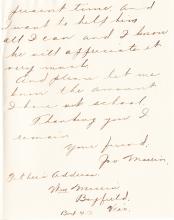 present time and
want to help him
all I can and I know
he will appreciate it
very much.
And please let me
know the amount
I have at school.
Thanking you I
remain
your friend,
Jos
Address.
Wm
Bayfield,
Box 43 Wis.